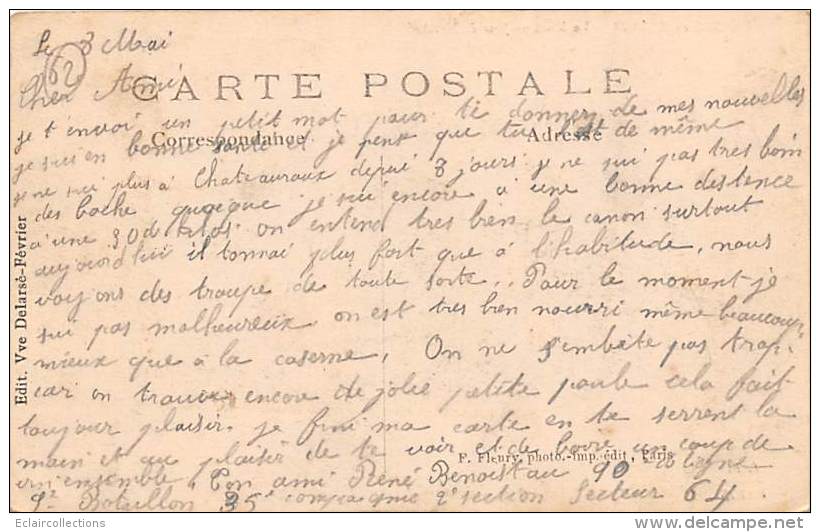 Le 8 Mai
62
Cher Ami
CARTE POSTALE
je t'envoi un petit mot pour te donner de mes nouvelles
Correspondance
Adresse
je sui en bonne santé et je pense que tu est de même
je ne sui plus à Chateauroux depui 8 jours je ne sui pas tres loin
des boche quoique je sui encore à une bonne distence
à une 30 de kilos on entend tres bien le canon surtout
aujourdhui il tonnai plus fort que à l'habitude, nous
voyons des troupe de toute sorte.. Pour le moment je
sui pas malheureux on est tres bien nourri même beaucoup
mieux que à la caserne. On ne s'embête pas trop.
car on trouve encore de jolie petite poule cela fait
toujour plaisir. je fini ma carte en te serrent la
main et au plaisir de te voir et de boire un coup de
F. Fleury, photo.-imp. édit, Paris
ensemble. Ton ami René Benoist au 90
9e Bataillon 35e compagnie 2e section Secteur 64.
Edit. Vve Delarse-Février
Eclaircollections
delcampe.net